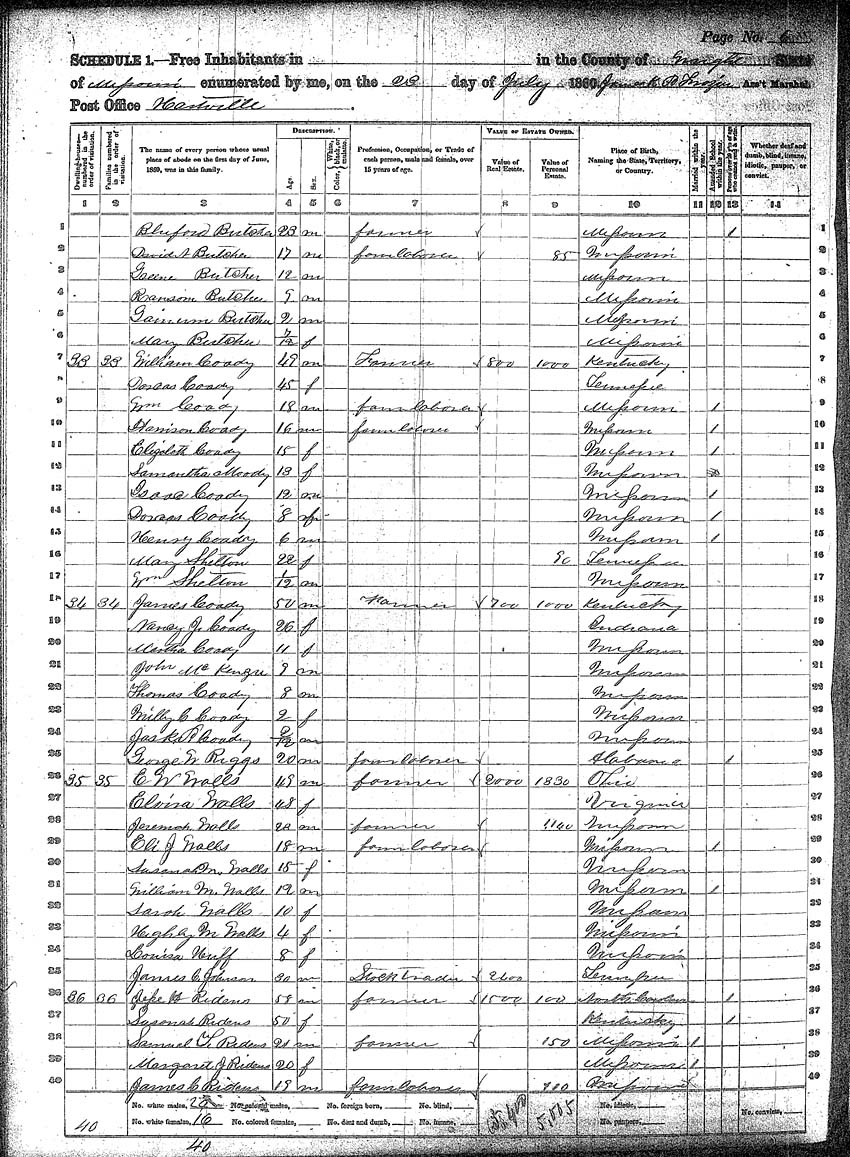 Page No. 6
SCHEDULE 1.—Free Inhabitants in in the County of Wright State
of Missouri enumerated by me, on the 23 day of July 1860. Ass't Marshal.
Post Office Hartville
Dwelling-houses—numbered in the order of visitation.
Families numbered in the order of visitation.
The name of every person whose usual place of abode on the first day of June, 1860, was in this family.
DESCRIPTION.
Age.
Sex.
Color, White, black, or mulatto.
Profession, Occupation, or Trade of each person, male and female, over 15 years of age.
VALUE OF ESTATE OWNED.
Value of Real Estate.
Value of Personal Estate.
Place of Birth, Naming the State, Territory, or Country.
Married within the year.
Attended School within the year.
Persons over 20 y'rs of age who cannot read & write.
Whether deaf and dumb, blind, insane, idiotic, pauper, or convict.
1 2 3 4 5 6 7 8 9 10 11 12 13 14
1 Bluford Butcher 23 m farmer Missouri 1 1
2 David A Butcher 17 m farm laborer 85 Missouri 2
3 Greene Butcher 12 m Missouri 3
4 Ransom Butcher 9 m Missouri 4
5 Butcher 2 m Missouri 5
6 Mary Butcher 7/12 f Missouri 6
7 33 33 William Coady 49 m Farmer 800 1000 Kentucky 7
8 Dorcas Coady 45 f Tennessee 8
9 Wm Coady 18 m farm laborer Missouri 1 9
10 Harrison Coady 16 m farm laborer Missouri 1 10
11 Elizabeth Coady 15 f Missouri 1 11
12 Samantha Moody 13 f Missouri 12
13 Isaac Coady 12 m Missouri 1 13
14 Dorcas Coady 8 f Missouri 1 14
15 Henry Coady 6 m Missouri 1 15
16 Mary Shelton 22 f 90 Tennessee 16
17 Wm Shelton 1/12 m Missouri 17
18 34 34 James Coady 50 m Farmer 700 1000 Kentucky 18
19 Nancy J. Coady 26 f Indiana 19
20 Martha Coady 11 f Missouri 20
21 John McKenzie 9 m Missouri 21
22 Thomas Coady 8 m Missouri 22
23 Milly C Coady 2 f Missouri 23
24 Coady m Missouri 24
25 George W Riggs 20 m farm laborer Alabama 1 25
26 35 35 E W Walls 49 m farmer 2000 1830 Ohio 26
27 Elvira Walls 48 f Virginia 27
28 Jeremiah Walls m farmer 1140 Missouri 28
29 Eli J Walls 18 m farm laborer Missouri 1 29
30 Susanah M. Walls 15 f Missouri 30
31 William M. Walls 12 m Missouri 1 31
32 Sarah Walls 10 f Missouri 32
33 M Walls 4 f Missouri 33
34 Louisa Huff 8 f Missouri 34
35 James C Johnson 30 m Stock trader 2400 Tennessee 35
36 36 36 Jesse B Ridens 58 m farmer 1500 100 North Carolina 1 36
37 Susanah Ridens 50 f Kentucky 1 37
38 Samuel T. Ridens 21 m farmer 150 Missouri 1 38
39 Margaret J Ridens 20 f Missouri 1 39
40 James C Ridens 19 m farm laborer Missouri 40
No. white males, No. colored males, No. foreign born, No. blind, No. idiotic,
No. white females, 16 No. colored females, No. deaf and dumb, No. insane, No. paupers, No. convicts,
40
40